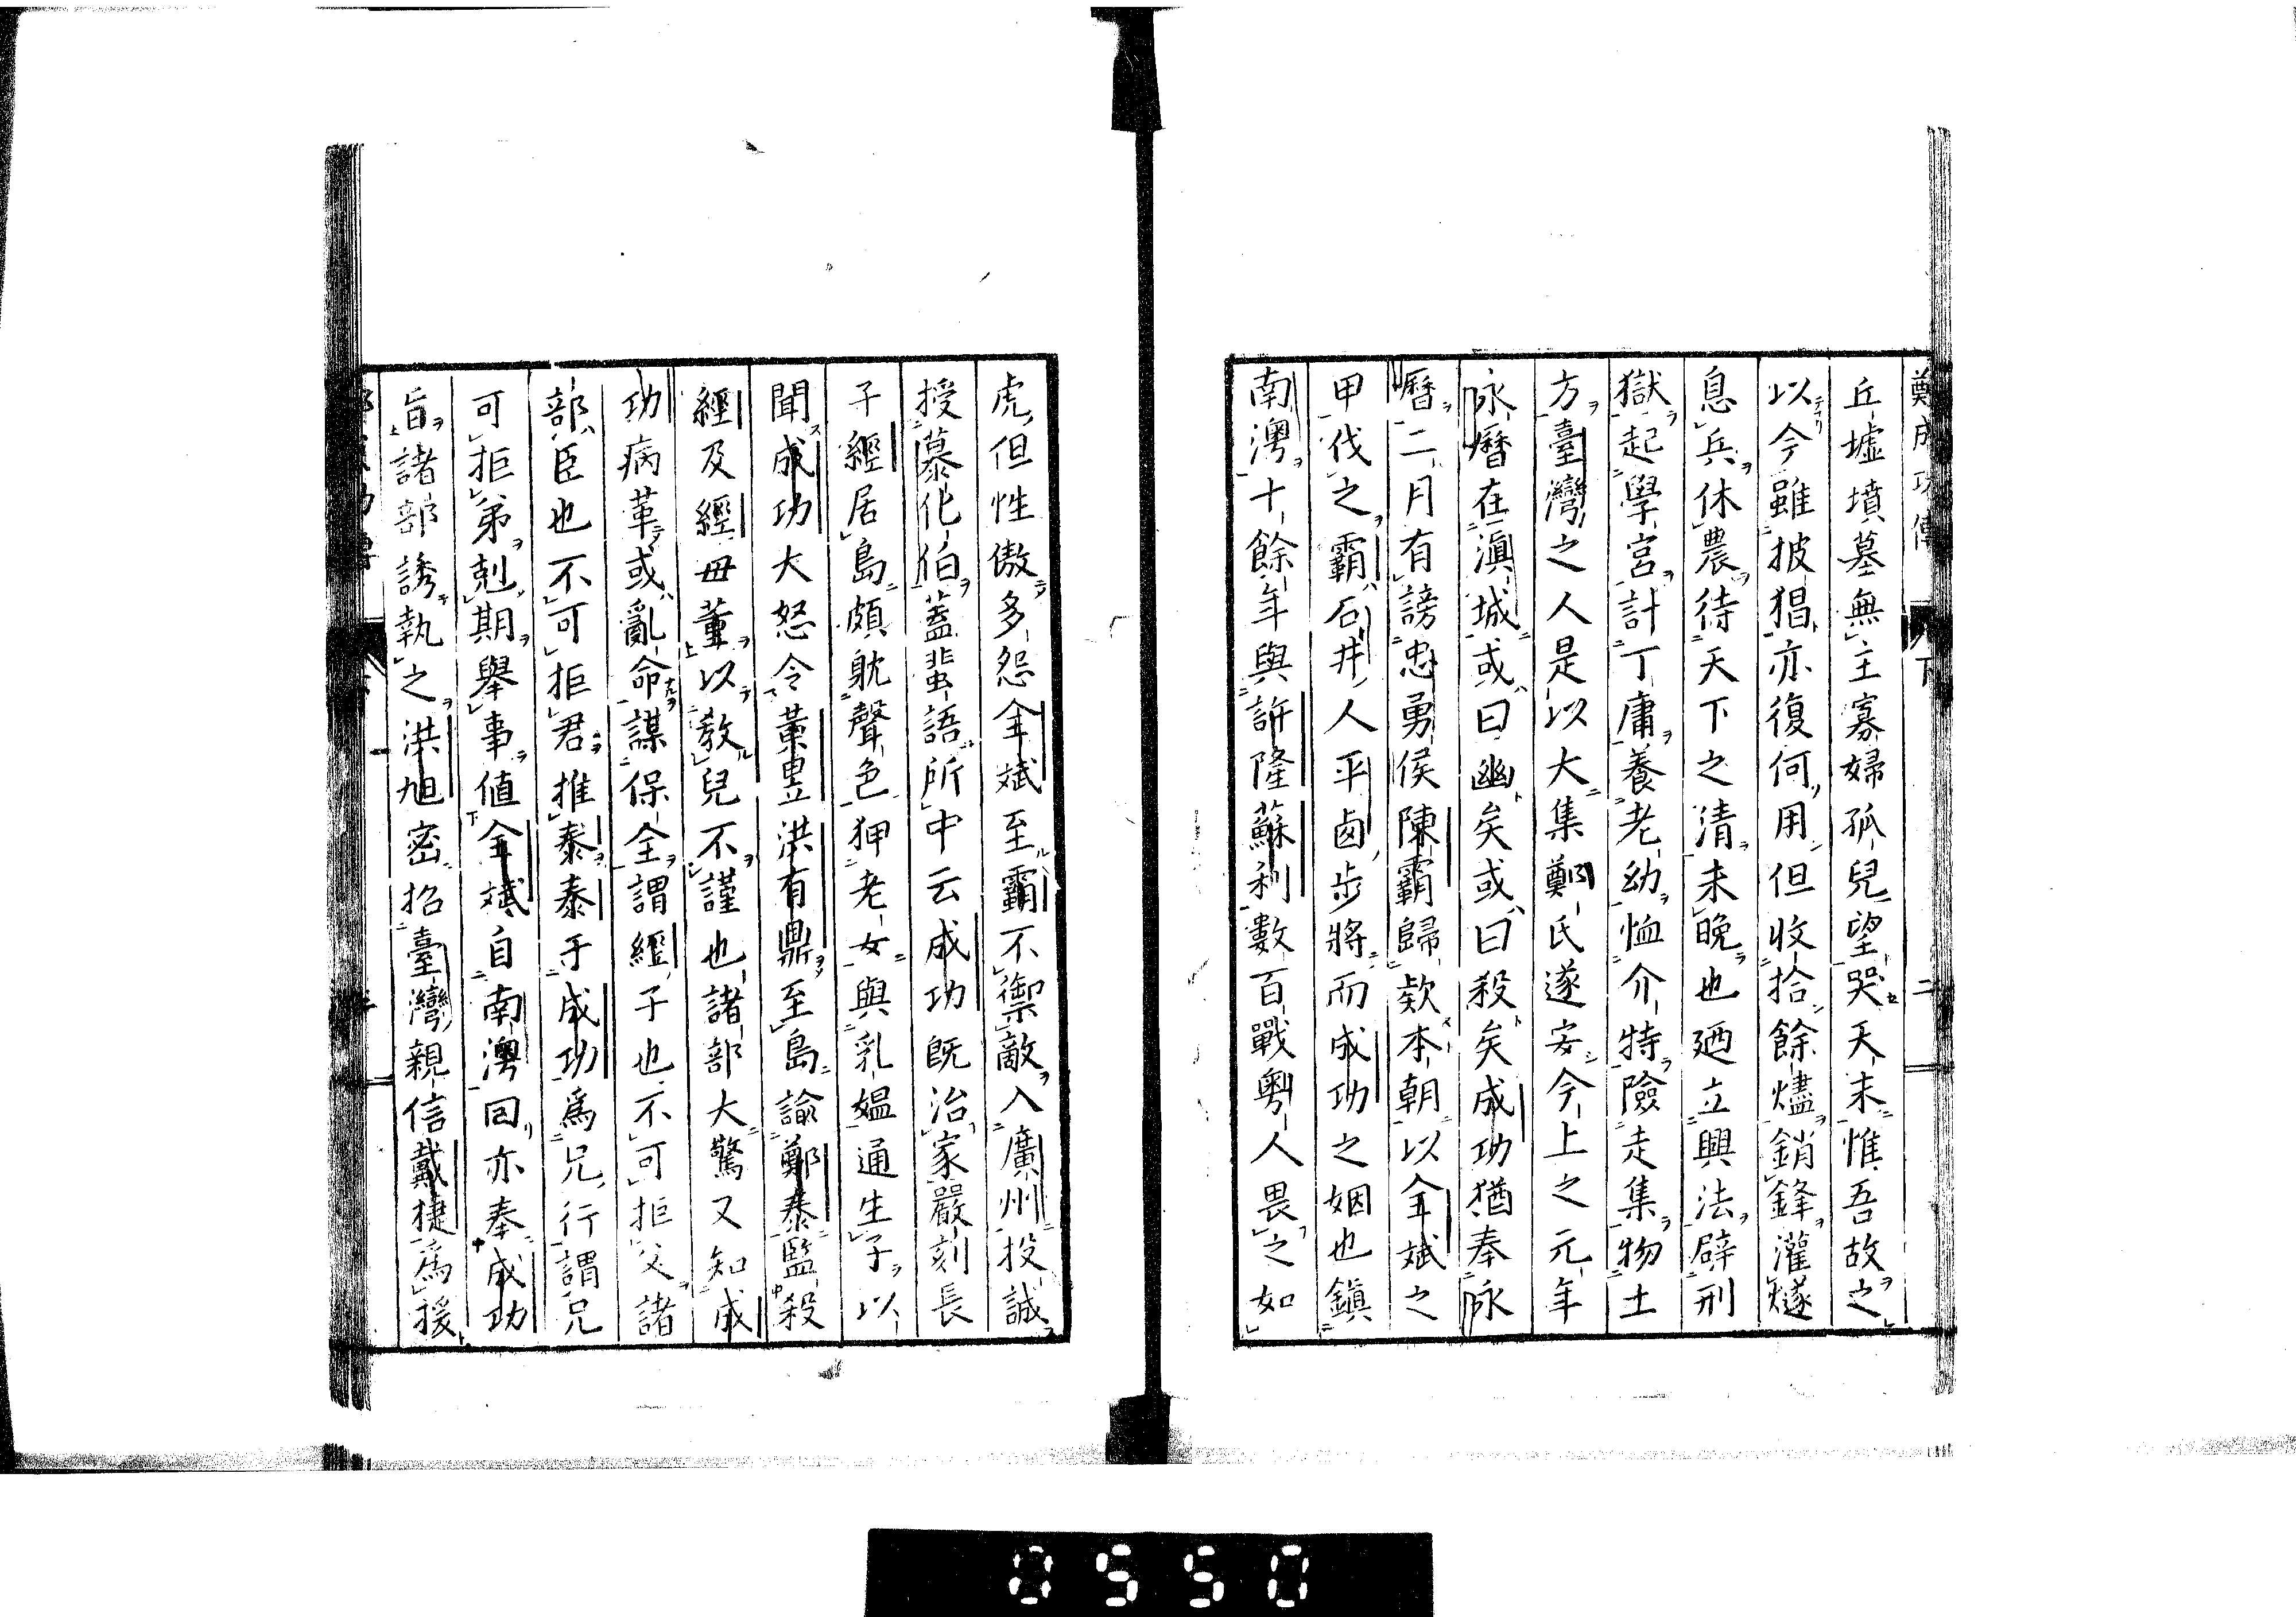 鄭成功傳 下 二
丘墟墳墓無主寡婦孤兒望哭天末惟吾故之
以今雖披猖亦復何用但收拾餘燼銷鋒灌燧
息兵休農待天下之清未晚也廼立興法辟刑
獄起學宮計丁庸養老幼恤介特險走集物土
方臺灣之人是以大集鄭氏遂安今上之元年
永曆在滇城或曰幽矣或曰殺矣成功猶奉永
曆二月有謗忠勇侯陳霸歸欵本朝以全斌之
甲伐之霸石井人平鹵步將而成功之姻也鎮
南澳十餘年與許隆蘇利數百戰粤人畏之如
虎但性傲多怨全斌至霸不禦敵入廣州投誠
授慕化伯蓋蜚語所中云成功既治家嚴刻長
子經居島頗躭聲色狎老女與乳媪通生子以
聞成功大怒令董昱洪有鼎至島諭鄭泰監殺
經及經毋董以教兒不謹也諸部大驚又知成
功病革或亂命謀保全謂經子也不可拒父諸
部臣也不可拒君推泰泰于成功爲兄行謂兄
可拒弟剋期舉事值全斌自南澳回亦奉成功
旨諸部誘執之洪旭密招臺灣親信戴捷爲援
0550